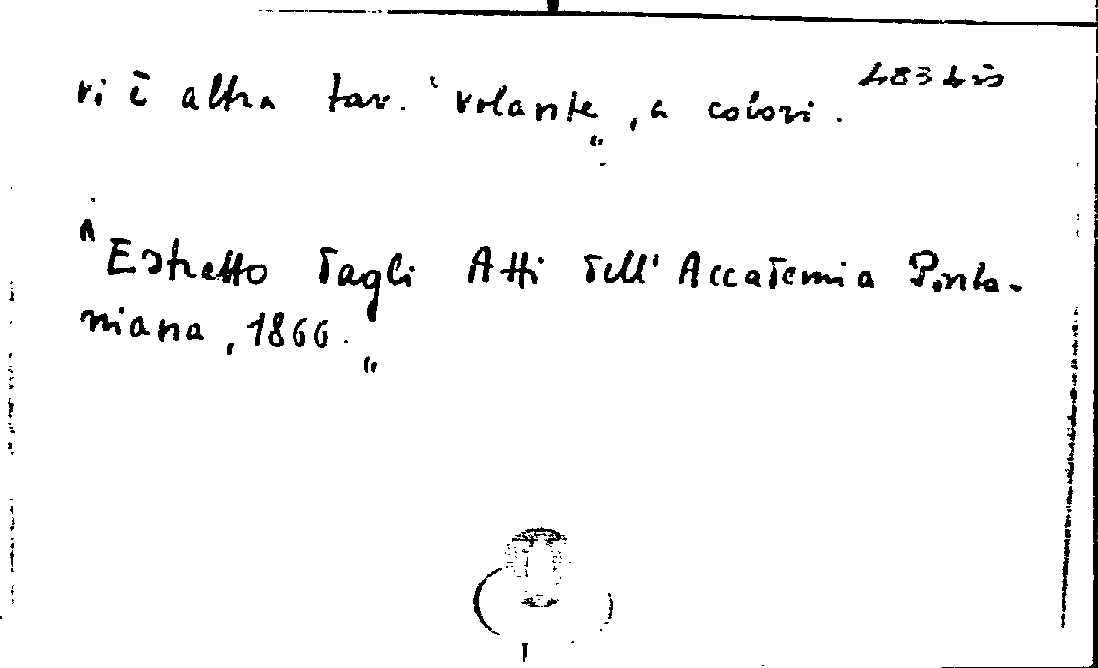 483 bis
vi è altra tav. "volante", a colori.
"Estratto dagli Atti dell'Accademia Ponta-
niana, 1866."